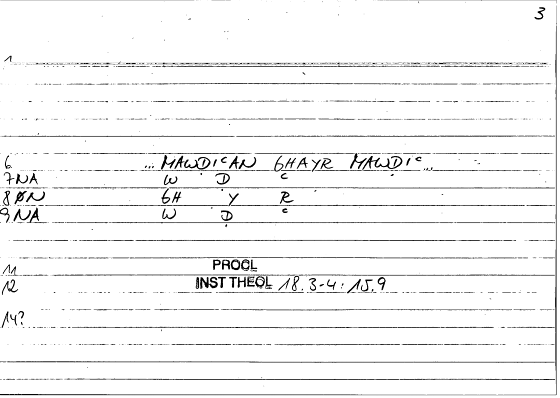 3
1
6 ... MAWḌIᶜAN GHAYR MAWḌIᶜ...
7NA W Ḍ ᶜ
8ØN GH Y R
9NA W Ḍ ᶜ
11 PROCL
12 INST THEOL 18.3-4: 15.9
14?